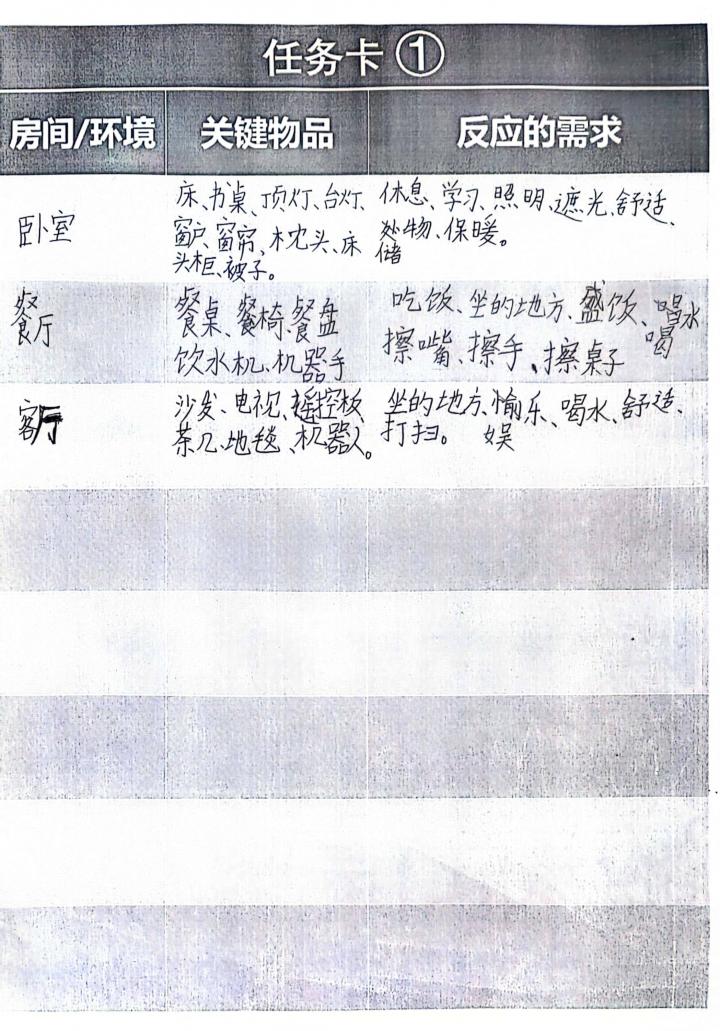 任务卡①
房间/环境 关键物品 反应的需求
卧室
床、书桌、顶灯、台灯、
窗户、窗帘、枕头、床
头柜、被子。
休息、学习、照明、遮光、舒适、
处物、保暖。
储
餐厅
餐桌、餐椅、餐盘
饮水机、机器手
吃饭、坐的地方、盛饭、喝水
喝
擦嘴、擦手、擦桌子
客厅
沙发、电视、摇控板、
茶几、地毯、机器人。
坐的地方、愉乐、喝水、舒适、
打扫。 娱